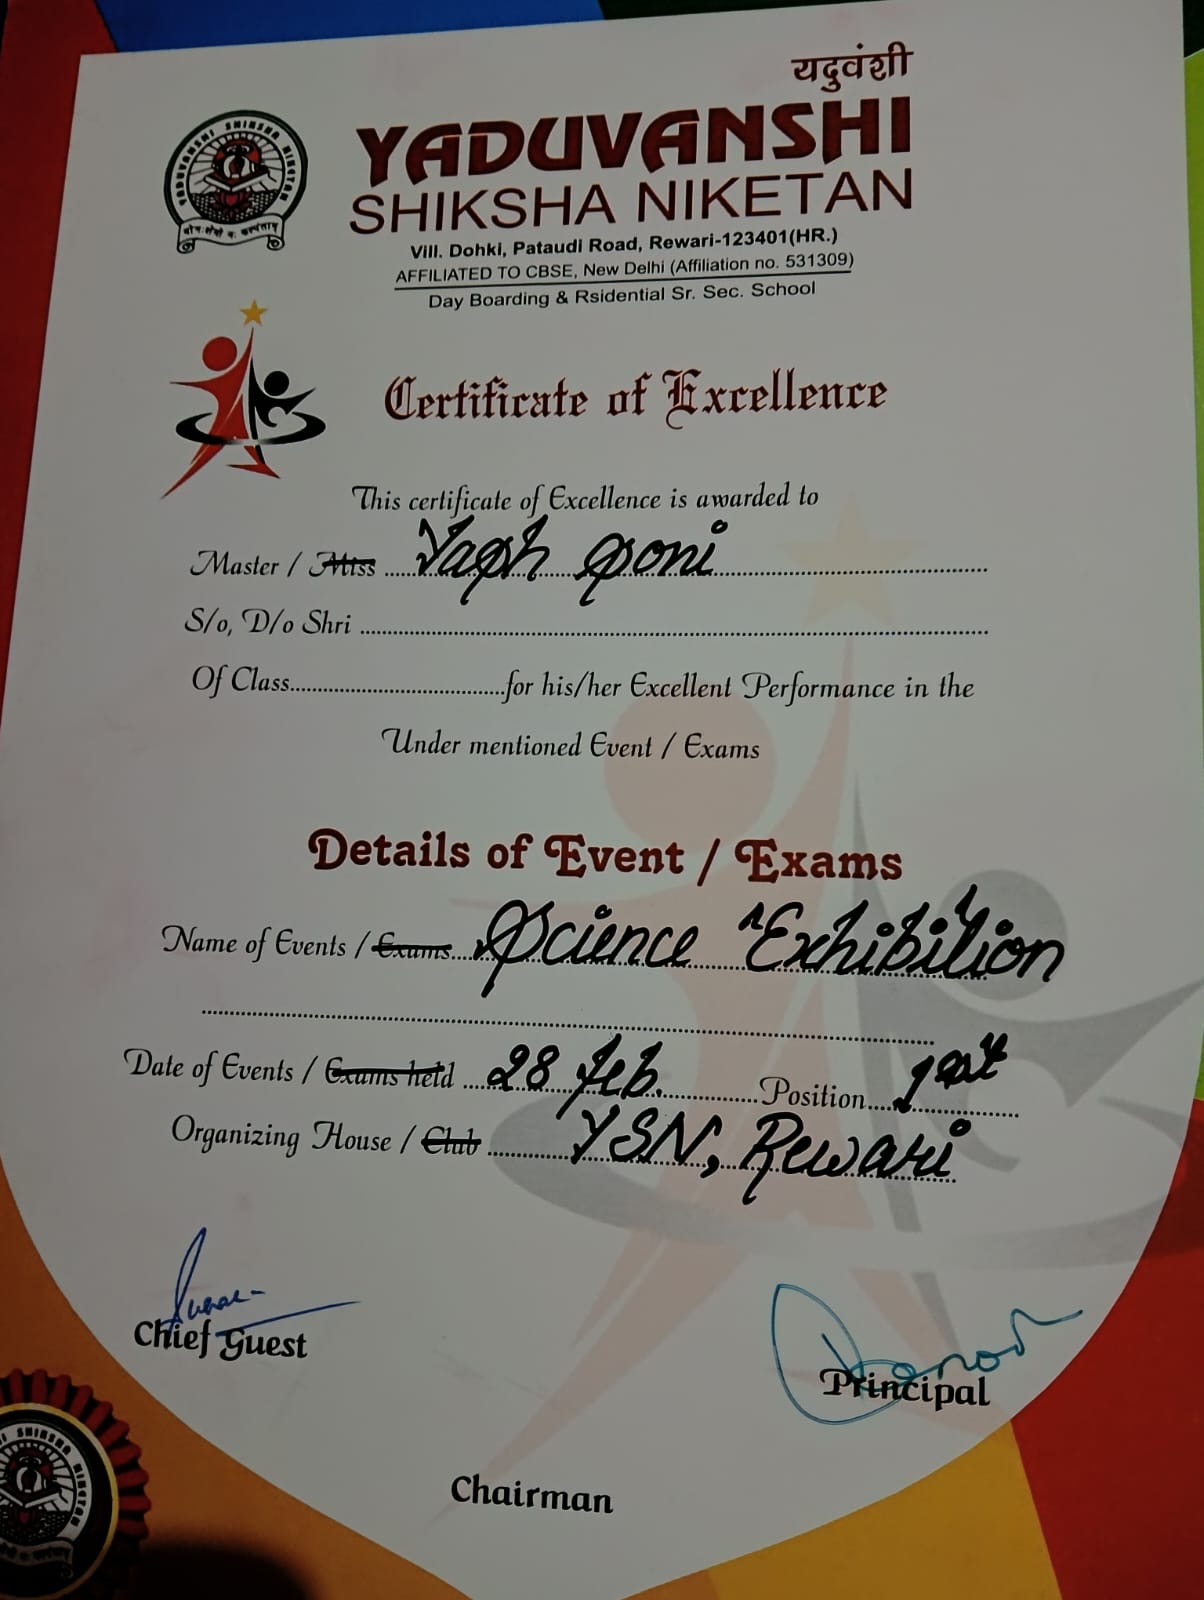 यदुवंशी
YADUVANSHI
SHIKSHA NIKETAN
Vill. Dohki, Pataudi Road, Rewari-123401(HR.)
AFFILIATED TO CBSE, New Delhi (Affiliation no. 531309)
Day Boarding & Rsidential Sr. Sec. School
YADUVANSHI SHIKSHA NIKETAN
Certificate of Excellence
This certificate of Excellence is awarded to
Master / Miss Yash Soni
S/o, D/o Shri
Of Class for his/her Excellent Performance in the
Under mentioned Event / Exams
Details of Event / Exams
Name of Events / Exams Science "Exhibition
Date of Events / Exams held 28 Feb. Position 1st
Organizing House / Club YSN, Rewari
Chief Guest
Principal
Chairman
SHIKSHA